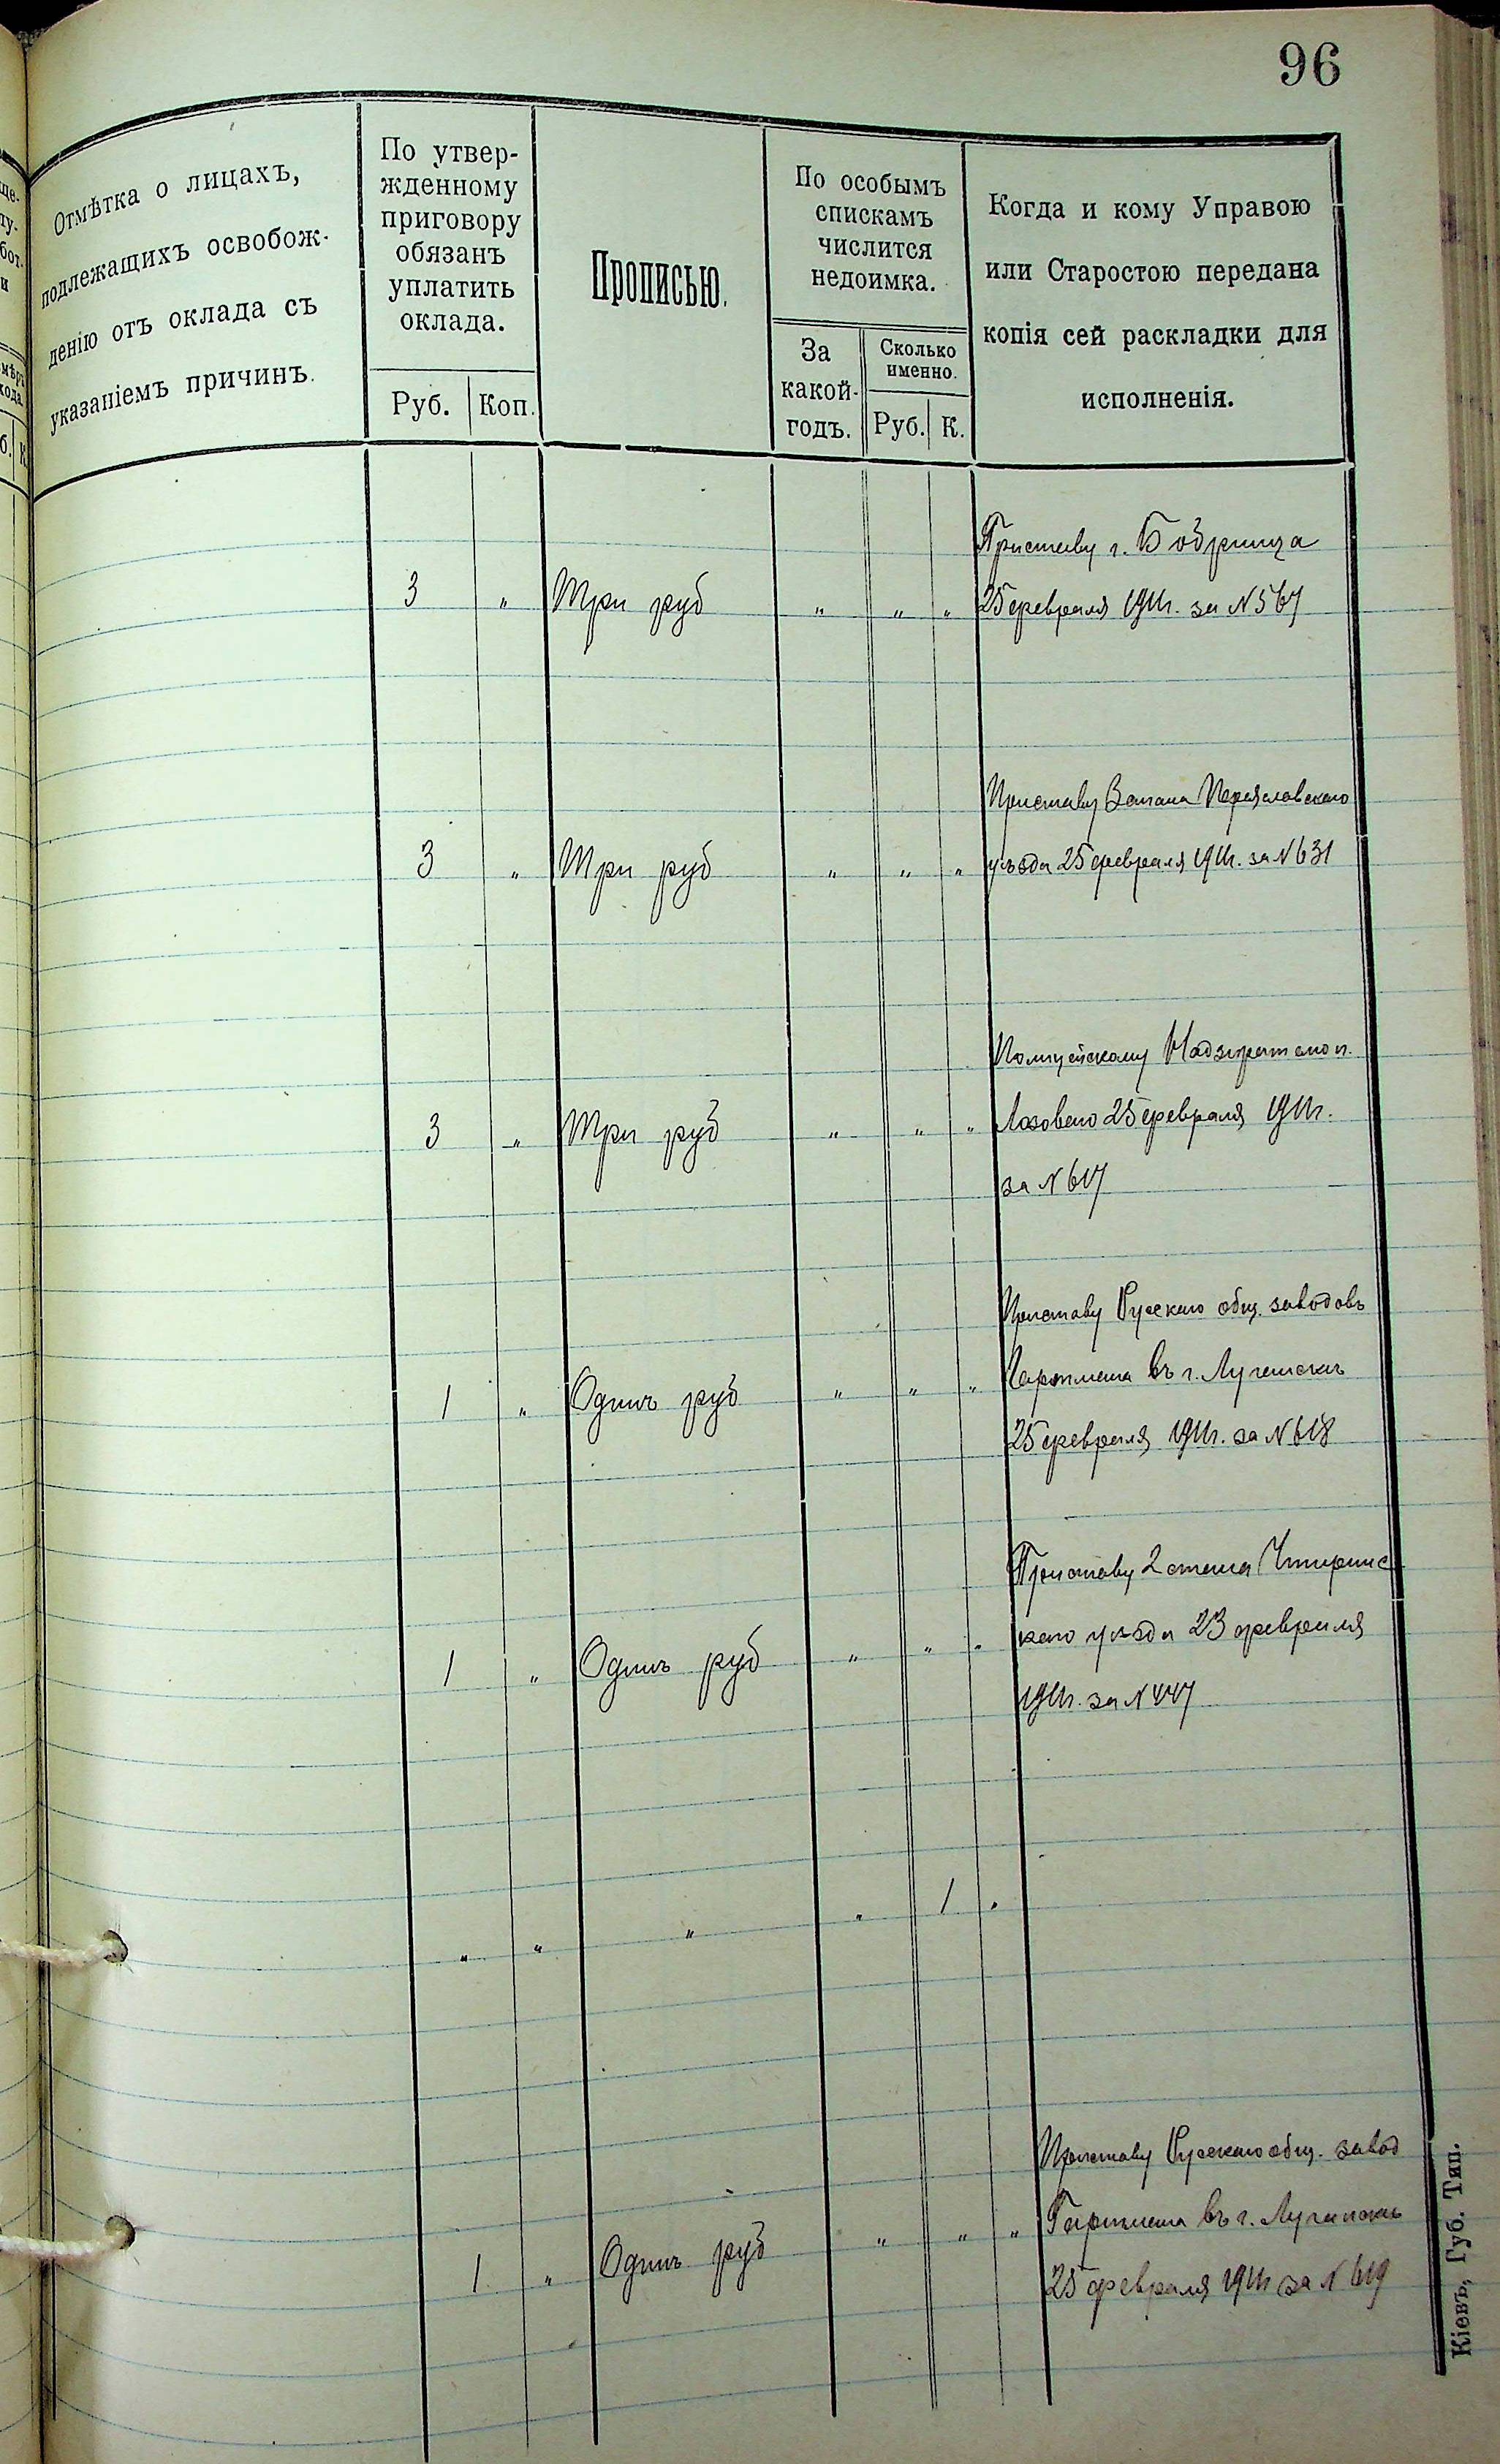 96
Отмѣтка о лицахъ,
подлежащихъ освобож-
денію отъ оклада съ
указаніемъ причинъ.
По утвер-
жденному
приговору
обязанъ
уплатить
оклада.
Руб. Коп.
Прописью.
По особымъ
спискамъ
числится
недоимка.
За
какой-
годъ.
Сколько
именно.
Руб. К.
Когда и кому Управою
или Старостою передана
копія сей раскладки для
исполненія.
Приставу г. Бобринца
3 „ Три руб „ „ „ 25 февраля 1911г. за N 567
Приставу Переяславскаго
3 „ Три руб „ „ „ уѣзда 25 февраля 1911г. за N 631
Полицейскому
3 „ Три руб „ „ „ Лозовая 25 февраля 1911г.
за N 617
Приставу Русскаго общ. заводовъ
1 „ Одинъ руб „ „ „ Гартмана въ г. Луганскѣ
25 февраля 1911г. за N 618
Приставу 2 стана Чигиринс
1 „ Одинъ руб „ „ „ каго уѣзда 23 февраля
1911г. за N 447
„ „ „ „ 1 „
Приставу Русскаго общ. завод
1 „ Одинъ руб „ „ „ Гартмана въ г. Луганскѣ
25 февраля 1911г за N 619
Кіевъ, Губ. Тип.